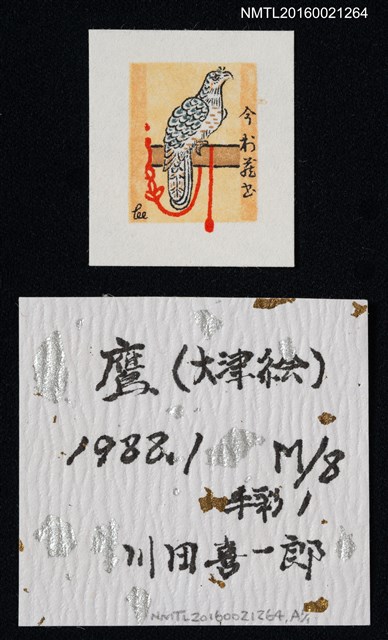 NMTL20160021264
今村藏書
Lee
鷹(大津絵)
1988.1 M/8
手彩1
川田喜一郎
NMTL20160021264.A1